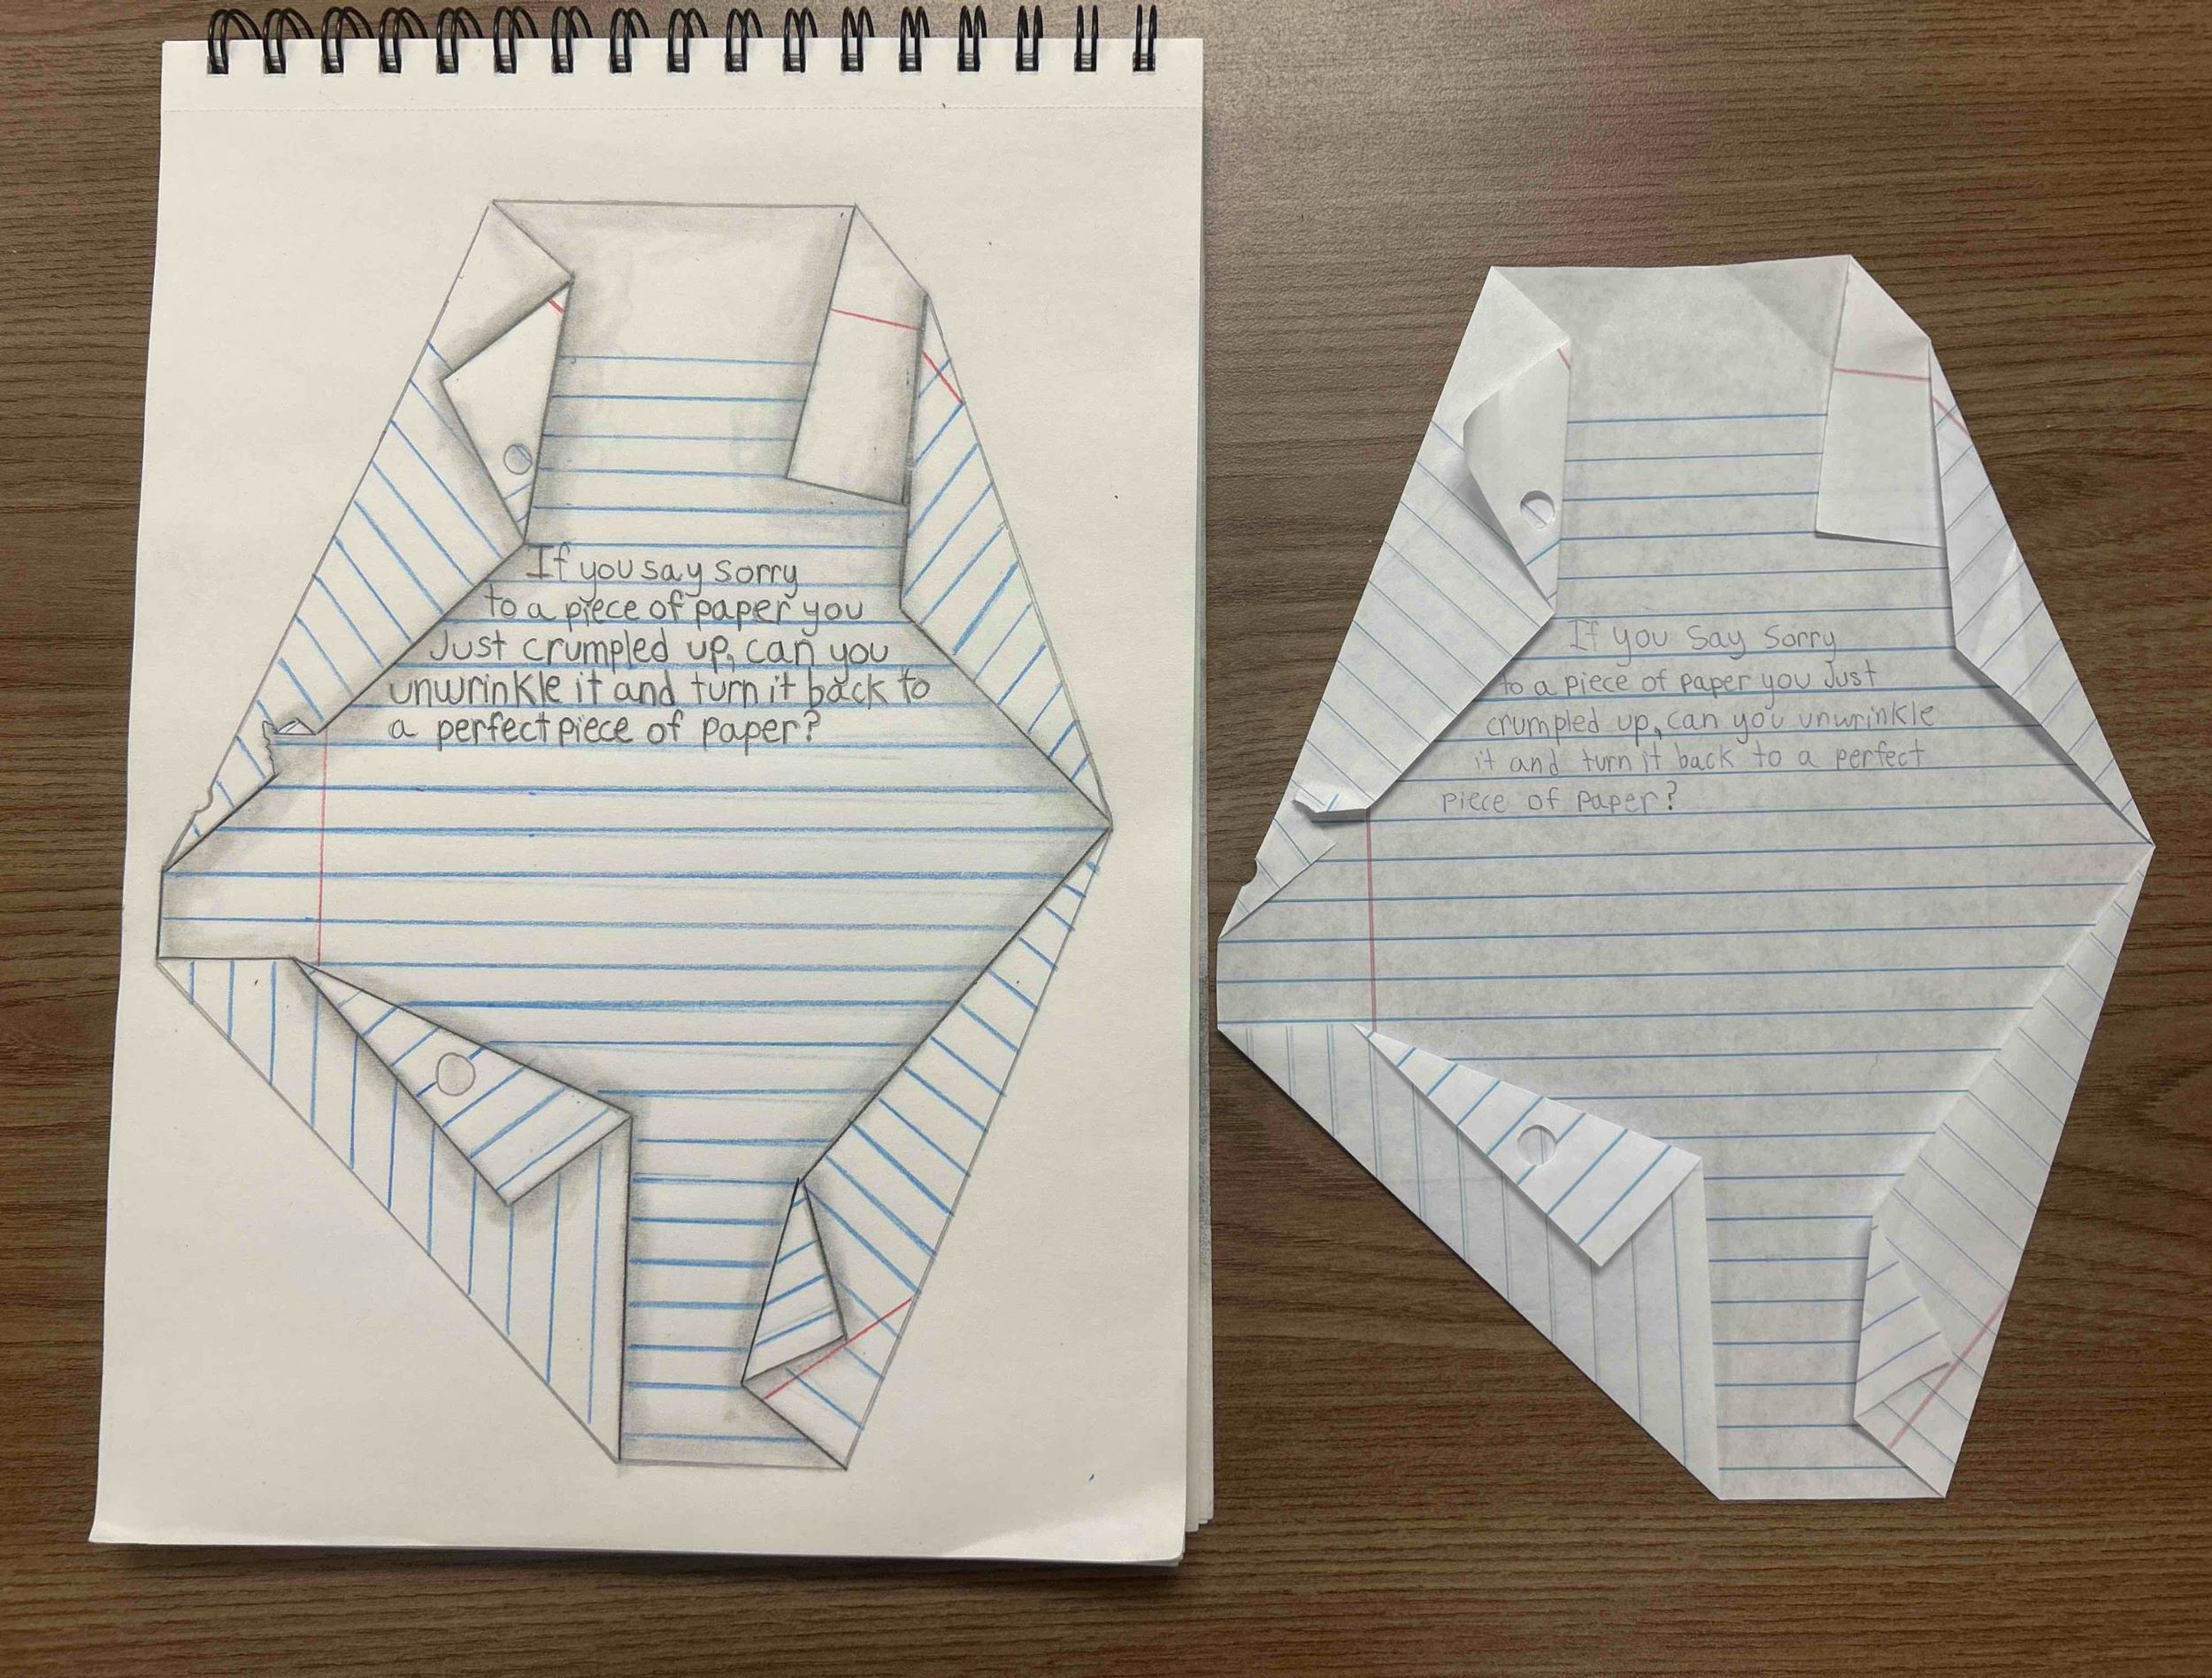 If you say sorry
to a piece of paper you
Just crumpled up, can you
unwrinkle it and turn it back to
a perfect piece of paper?
If you Say Sorry
to a piece of paper you Just
crumpled up, can you unwrinkle
it and turn it back to a perfect
piece of paper?